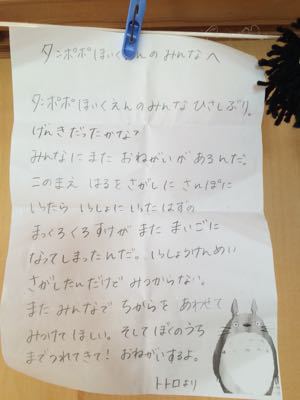 タンポポほいくえんのみんなへ
タンポポほいくえんのみんなひさしぶり。
げんきだったかな?
みんなにまたおねがいがあるんだ。
このまえはるをさがしにさんぽに
いったらいっしょにいったはずの
まっくろくろすけがまたまいごに
なってしまったんだ。いっしょうけんめい
さがしたんだけどみつからない。
またみんなでちからをあわせて
みつけてほしい。そしてぼくのうち
までつれてきて!おねがいするよ。
トトロより